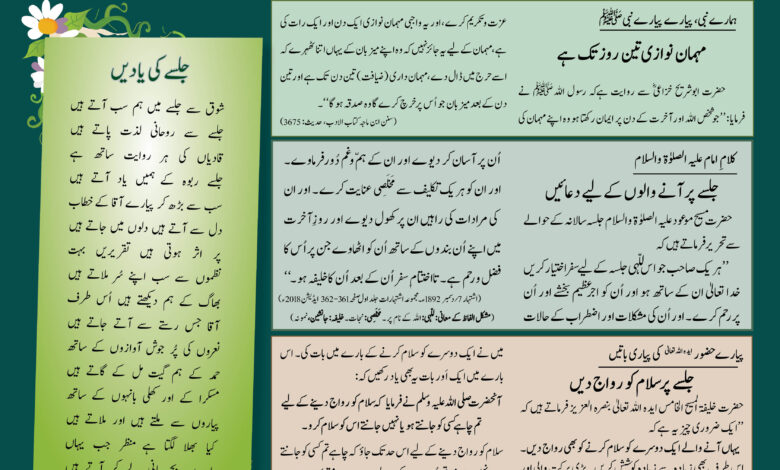 ہمارے نبی، پیارے پیارے نبی ﷺ
مہمان نوازی تین روز تک ہے
حضرت ابوشریح خزاعیؓ سے روایت ہے کہ رسول اللہ ﷺ نے
فرمایا: ’’جو شخص اللہ اور آخرت کے دن پر ایمان رکھتا ہو وہ اپنے مہمان کی
عزت و تکریم کرے، اور یہ واجبی مہمان نوازی ایک دن اور ایک رات کی
ہے، مہمان کے لیے یہ جائز نہیں کہ وہ اپنے میزبان کے یہاں اتنا ٹھہرے کہ
اسے حرج میں ڈال دے، مہمان داری (ضیافت) تین دن تک ہے اور تین
دن کے بعد میزبان جو اُس پر خرچ کرے گا وہ صدقہ ہو گا‘‘۔
(سنن ابن ماجہ کتاب الادب، حدیث: 3675)
کلامِ امام علیہ الصلوٰۃ والسلام
جلسے پر آنے والوں کے لیے دعائیں
حضرت مسیح موعود علیہ الصلوٰۃ والسلام جلسہ سالانہ کے حوالے
سے تحریر فرماتے ہیں کہ
’’ہر یک صاحب جو اس للّٰہی جلسہ کے لیے سفر اختیار کریں
خدا تعالیٰ ان کے ساتھ ہو اور ان کو اجرِ عظیم بخشے اور اُن
پر رحم کرے۔ اور اُن کی مشکلات اور اضطراب کے حالات
اُن پر آسان کر دیوے اور ان کے ہمّ و غم دُور فرماوے۔
اور ان کو ہریک تکلیف سے مخلصی عنایت کرے۔ اور ان
کی مرادات کی راہیں ان پر کھول دیوے اور روزِ آخرت
میں اپنے اُن بندوں کے ساتھ اُن کو اٹھاوے جن پر اُس کا
فضل و رحم ہے۔ تا اختتام سفر اُن کے بعد اُن کا خلیفہ ہو۔‘‘
(اشتہار 7؍دسمبر 1892ء۔ مجموعہ اشتہارات جلد اوّل صفحہ 361-362 ایڈیشن 2018ء)
(مشکل الفاظ کے معانی: للّٰہی: اللہ کے نام پر۔ مخلصی: نجات۔ خلیفہ: جانشین، نمونہ)
پیارے حضور ایدہ اللہ تعالیٰ کی پیاری باتیں
جلسے پر سلام کو رواج دیں
حضرت خلیفۃ المسیح الخامس ایدہ اللہ تعالیٰ بنصرہ العزیز فرماتے ہیں کہ
’’ایک ضروری چیز یہ ہے کہ
یہاں آنے والے ایک دوسرے کو سلام کرنے کو بھی رواج دیں۔
میں نے ایک دوسرے کو سلام کرنے کے بارے میں بات کی۔ اس
بارے میں ایک اَور بات یہ بھی یاد رکھیں کہ:
آنحضرت صلی اللہ علیہ وسلم نے فرمایا کہ سلام کو رواج دینے کے لیے
تم چاہے کسی کو جانتے ہو یا نہیں جانتے اس کو سلام کرو۔
سلام کو رواج دینے کے لیے اس حد تک جاؤ کہ چاہے تم کسی کو جانتے
جلسے کی یادیں
شوق سے جلسے میں ہم سب آتے ہیں
جلسے سے روحانی لذت پاتے ہیں
قادیاں کی ہر روایت ساتھ ہے
جلسے ربوہ کے ہمیں یاد آتے ہیں
سب سے بڑھ کر پیارے آقا کے خطاب
دل سے آتے ہیں دلوں میں جاتے ہیں
پر اثر ہوتی ہیں تقریریں بہت
نظموں سے سب اپنے سُر ملاتے ہیں
بھاگ کے ہم دیکھتے ہیں اُس طرف
آقا جس رستے سے آتے جاتے ہیں
نعروں کی پُر جوش آوازوں کے ساتھ
حمد کے ہم گیت مل کے گاتے ہیں
مسکرا کے اور کھلی بانہوں کے ساتھ
پیاروں سے ملتے ہیں اور ملاتے ہیں
کیا بھلا لگتا ہے منظر جب یہاں